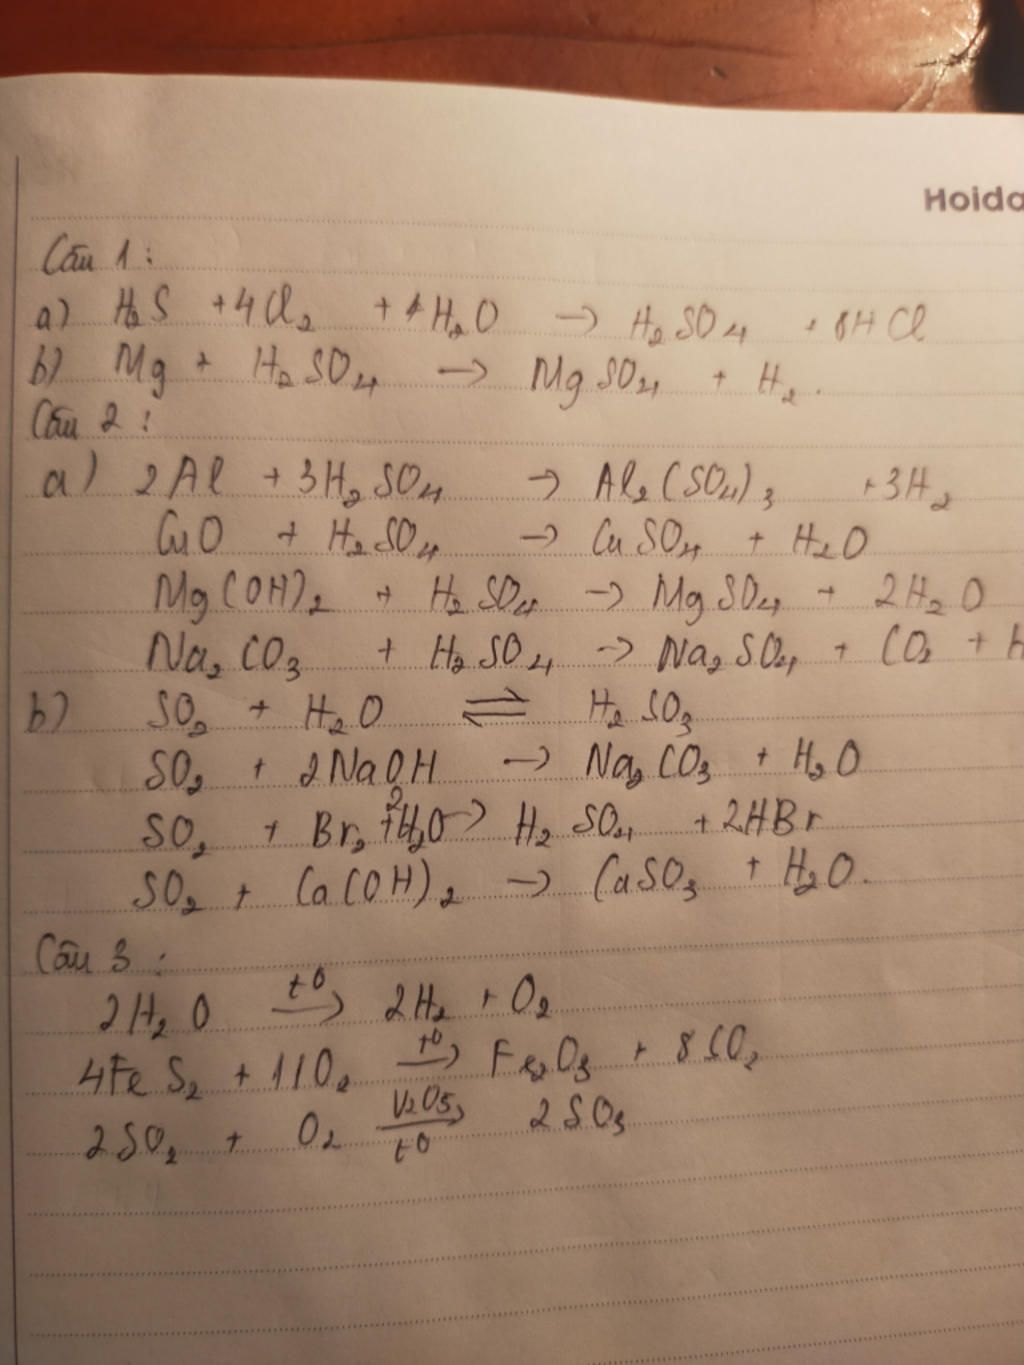 Hoida
Câu 1:
a) H₂S + 4Cl₂ + 4H₂O → H₂SO₄ + 8HCl
b) Mg + H₂SO₄ → MgSO₄ + H₂.
Câu 2:
a) 2Al + 3H₂SO₄ → Al₂(SO₄)₃ + 3H₂
CuO + H₂SO₄ → CuSO₄ + H₂O
Mg(OH)₂ + H₂SO₄ → MgSO₄ + 2H₂O
Na₂CO₃ + H₂SO₄ → Na₂SO₄ + CO₂ + H
b) SO₂ + H₂O ⇌ H₂SO₃
SO₂ + 2NaOH → Na₂CO₃ + H₂O
SO₂ + Br₂ + 2H₂O → H₂SO₄ + 2HBr
SO₂ + Ca(OH)₂ → CaSO₃ + H₂O.
Câu 3:
2H₂O t⁰→ 2H₂ + O₂
4FeS₂ + 11O₂ t⁰→ Fe₂O₃ + 8SO₂
2SO₂ + O₂ V₂O₅→ t⁰ 2SO₃